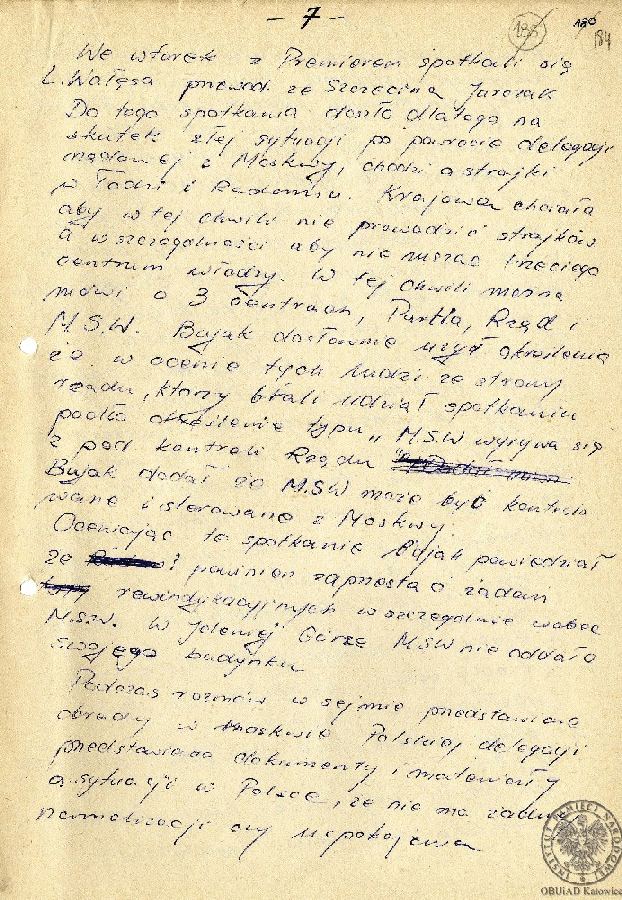 - 7 -
We wtorek z Premierem spotkali się
L. Wałęsa przewod. ze Szczecina Jurczak
Do tego spotkania doszło dlatego na
skutek złej sytuacji po powrocie delegacji
rządowej z Moskwy, chodzi o strajki
w Łodzi i Radomiu. Krajowa chciała
aby w tej chwili nie prowadzić strajków
a w szczególności aby nie ruszać trzeciego
centrum władzy. W tej chwili można
mówi o 3 centrach, Partia, Rząd i
M.S.W. Bujak dosłownie użył określenia
że w ocenie tych ludzi ze strony
rządu, którzy brali udział spotkaniu
padło określenie typu „M.S.W wyrywa się
z pod kontroli Rządu
Bujak dodał że M.S.W może być kontrolo
wane i sterowane z Moskwy.
Oceniając to spotkanie Bujak powiedział
że powinien zaprzestać żądań
rewindykacyjnych w szczególnie wobec
M.S.W. W Jeleniej Górze MSW nie oddało
swojego budynku
Podczas rozmów w sejmie przedstawiono
obrady w Moskwie Polskiej delegacji
przedstawiono dokumenty i materiały
o sytuacji w Polsce, że nie ma żadnej
normalizacji czy uspokojenia
INSTYTUT PAMIĘCI NARODOWEJ
OBUiAD Katowice